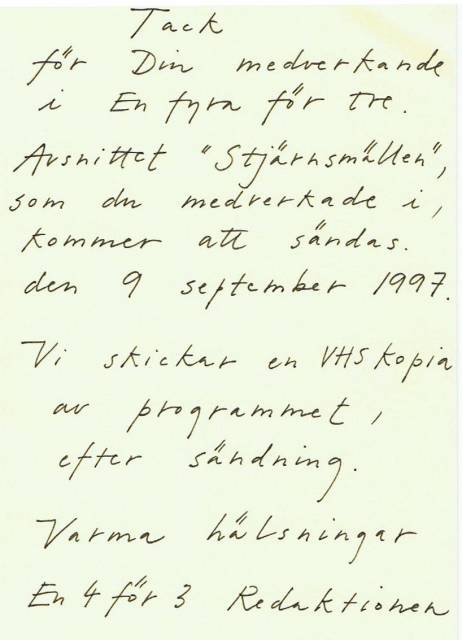 Tack
för Din medverkande
i En fyra för tre.
Avsnittet "Stjärnsmällen",
som du medverkade i,
kommer att sändas.
den 9 september 1997.
Vi skickar en VHS kopia
av programmet,
efter sändning.
Varma hälsningar
En 4 för 3 Redaktionen